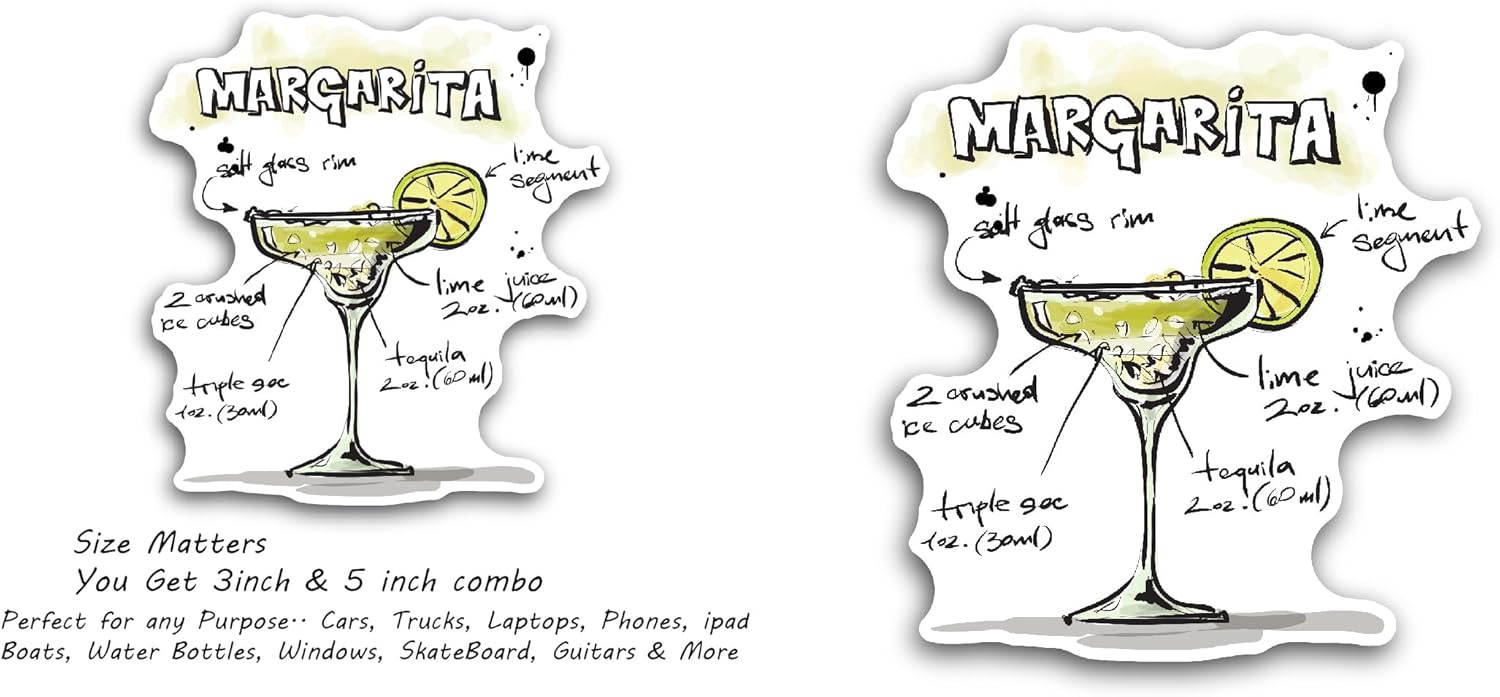 MARGARITA
salt glass rim
lime
segment
2 crushed
ice cubes
lime juice
2oz. (60ml)
triple sec
1oz. (30ml)
tequila
2oz. (60ml)
Size Matters
You Get 3inch & 5 inch combo
Perfect for any Purpose·· Cars, Trucks, Laptops, Phones, ipad
Boats, Water Bottles, Windows, SkateBoard, Guitars & More
MARGARITA
salt glass rim
lime
segment
2 crushed
ice cubes
lime juice
2oz. (60ml)
tequila
2oz. (60ml)
triple sec
1oz. (30ml)